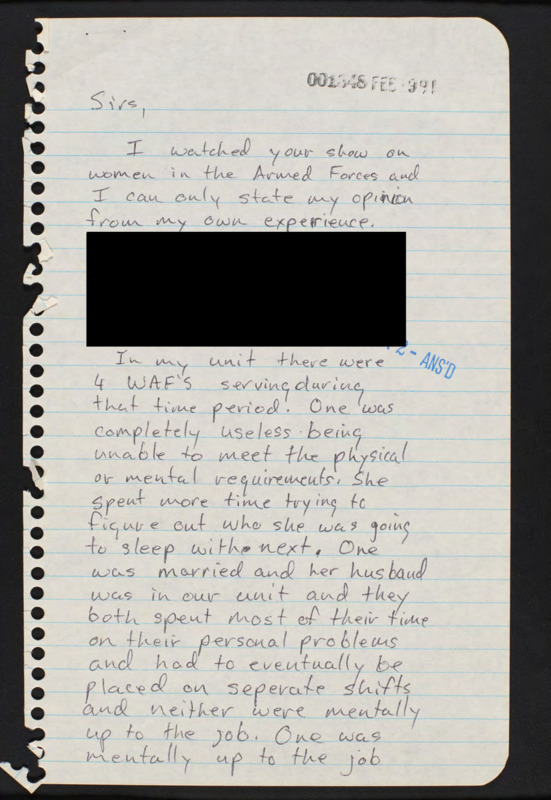 001348 FEB-991
Sirs,
I watched your show on
women in the Armed Forces and
I can only state my opinion
from my own experience.
2 - ANS'D
In my unit there were
4 WAF'S serving during
that time period. One was
completely useless being
unable to meet the physical
or mental requirements. She
spent more time trying to
figure out who she was going
to sleep with next. One
was married and her husband
was in our unit and they
both spent most of their time
on their personal problems
and had to eventually be
placed on seperate shifts
and neither were mentally
up to the job. One was
mentally up to the job